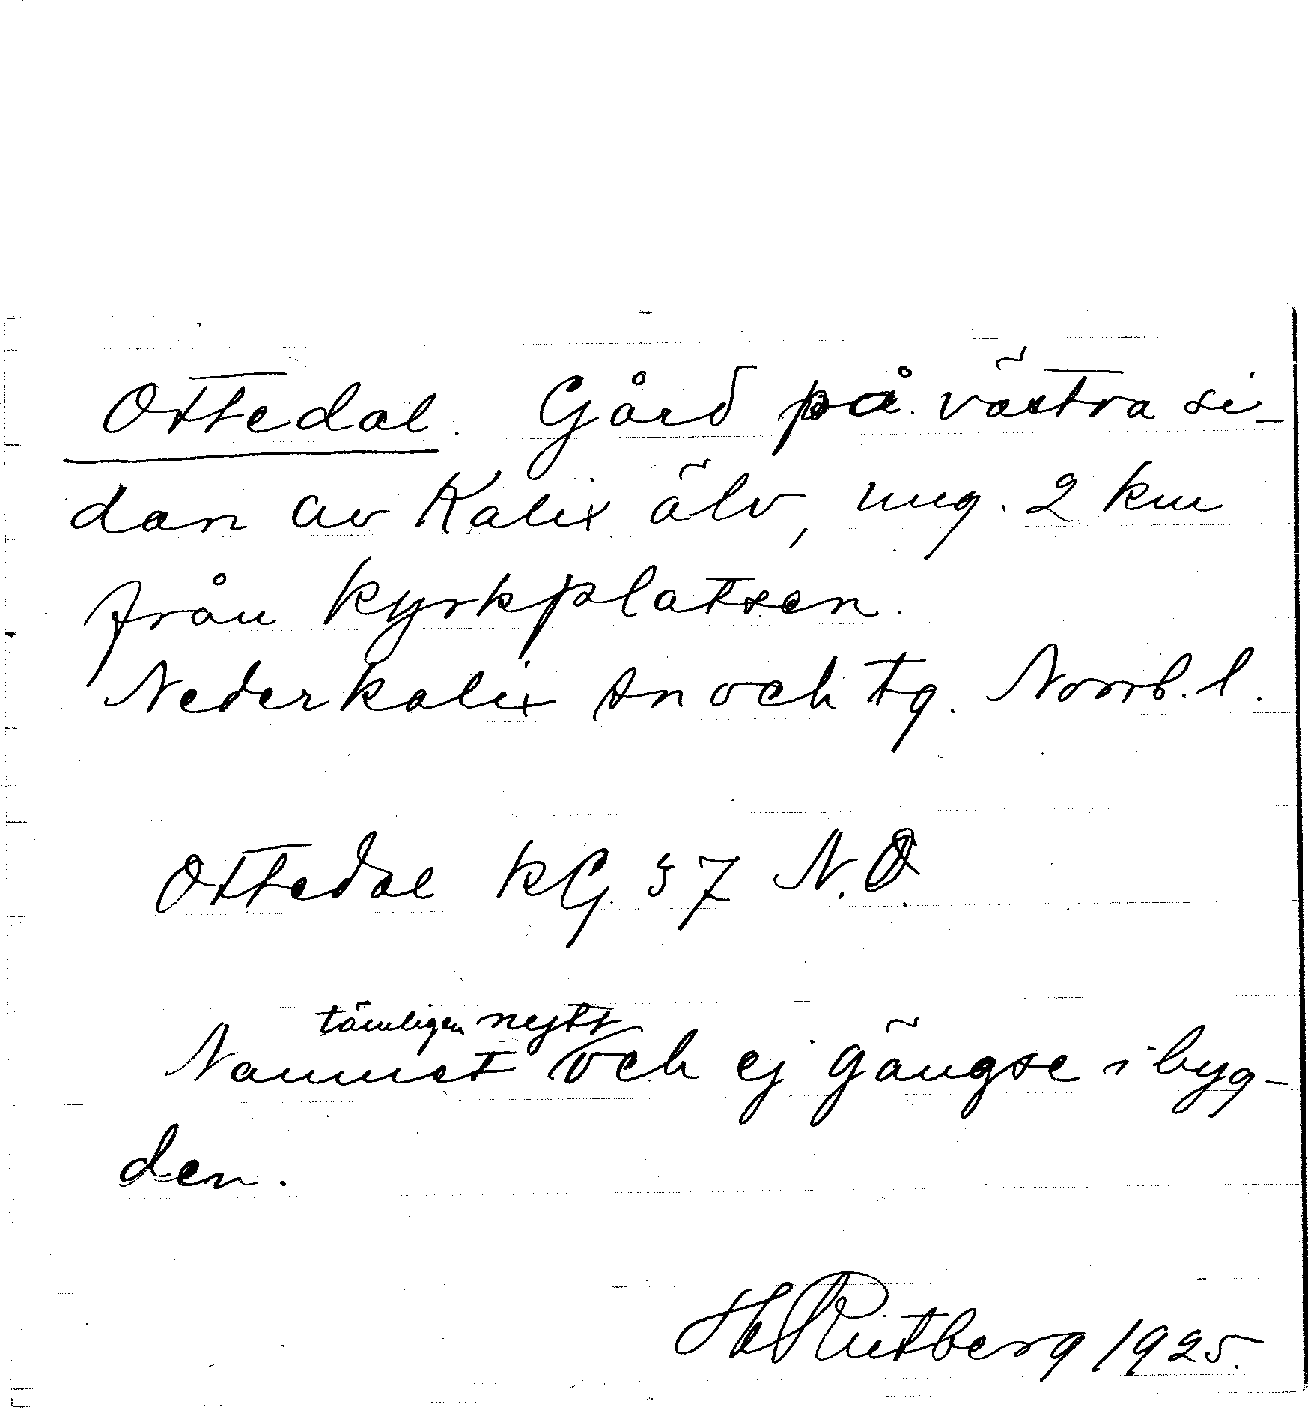 Ottedal. Gård på västra si-
dan av Kalix älv, ung. 2 km
från kyrkplatsen.
Nederkalix sn och tg. Norrb. l.
Ottedal KG 37 N.O
tämligen nytt
Namnet och ej gängse i byg-
den.
H Rutberg 1925.